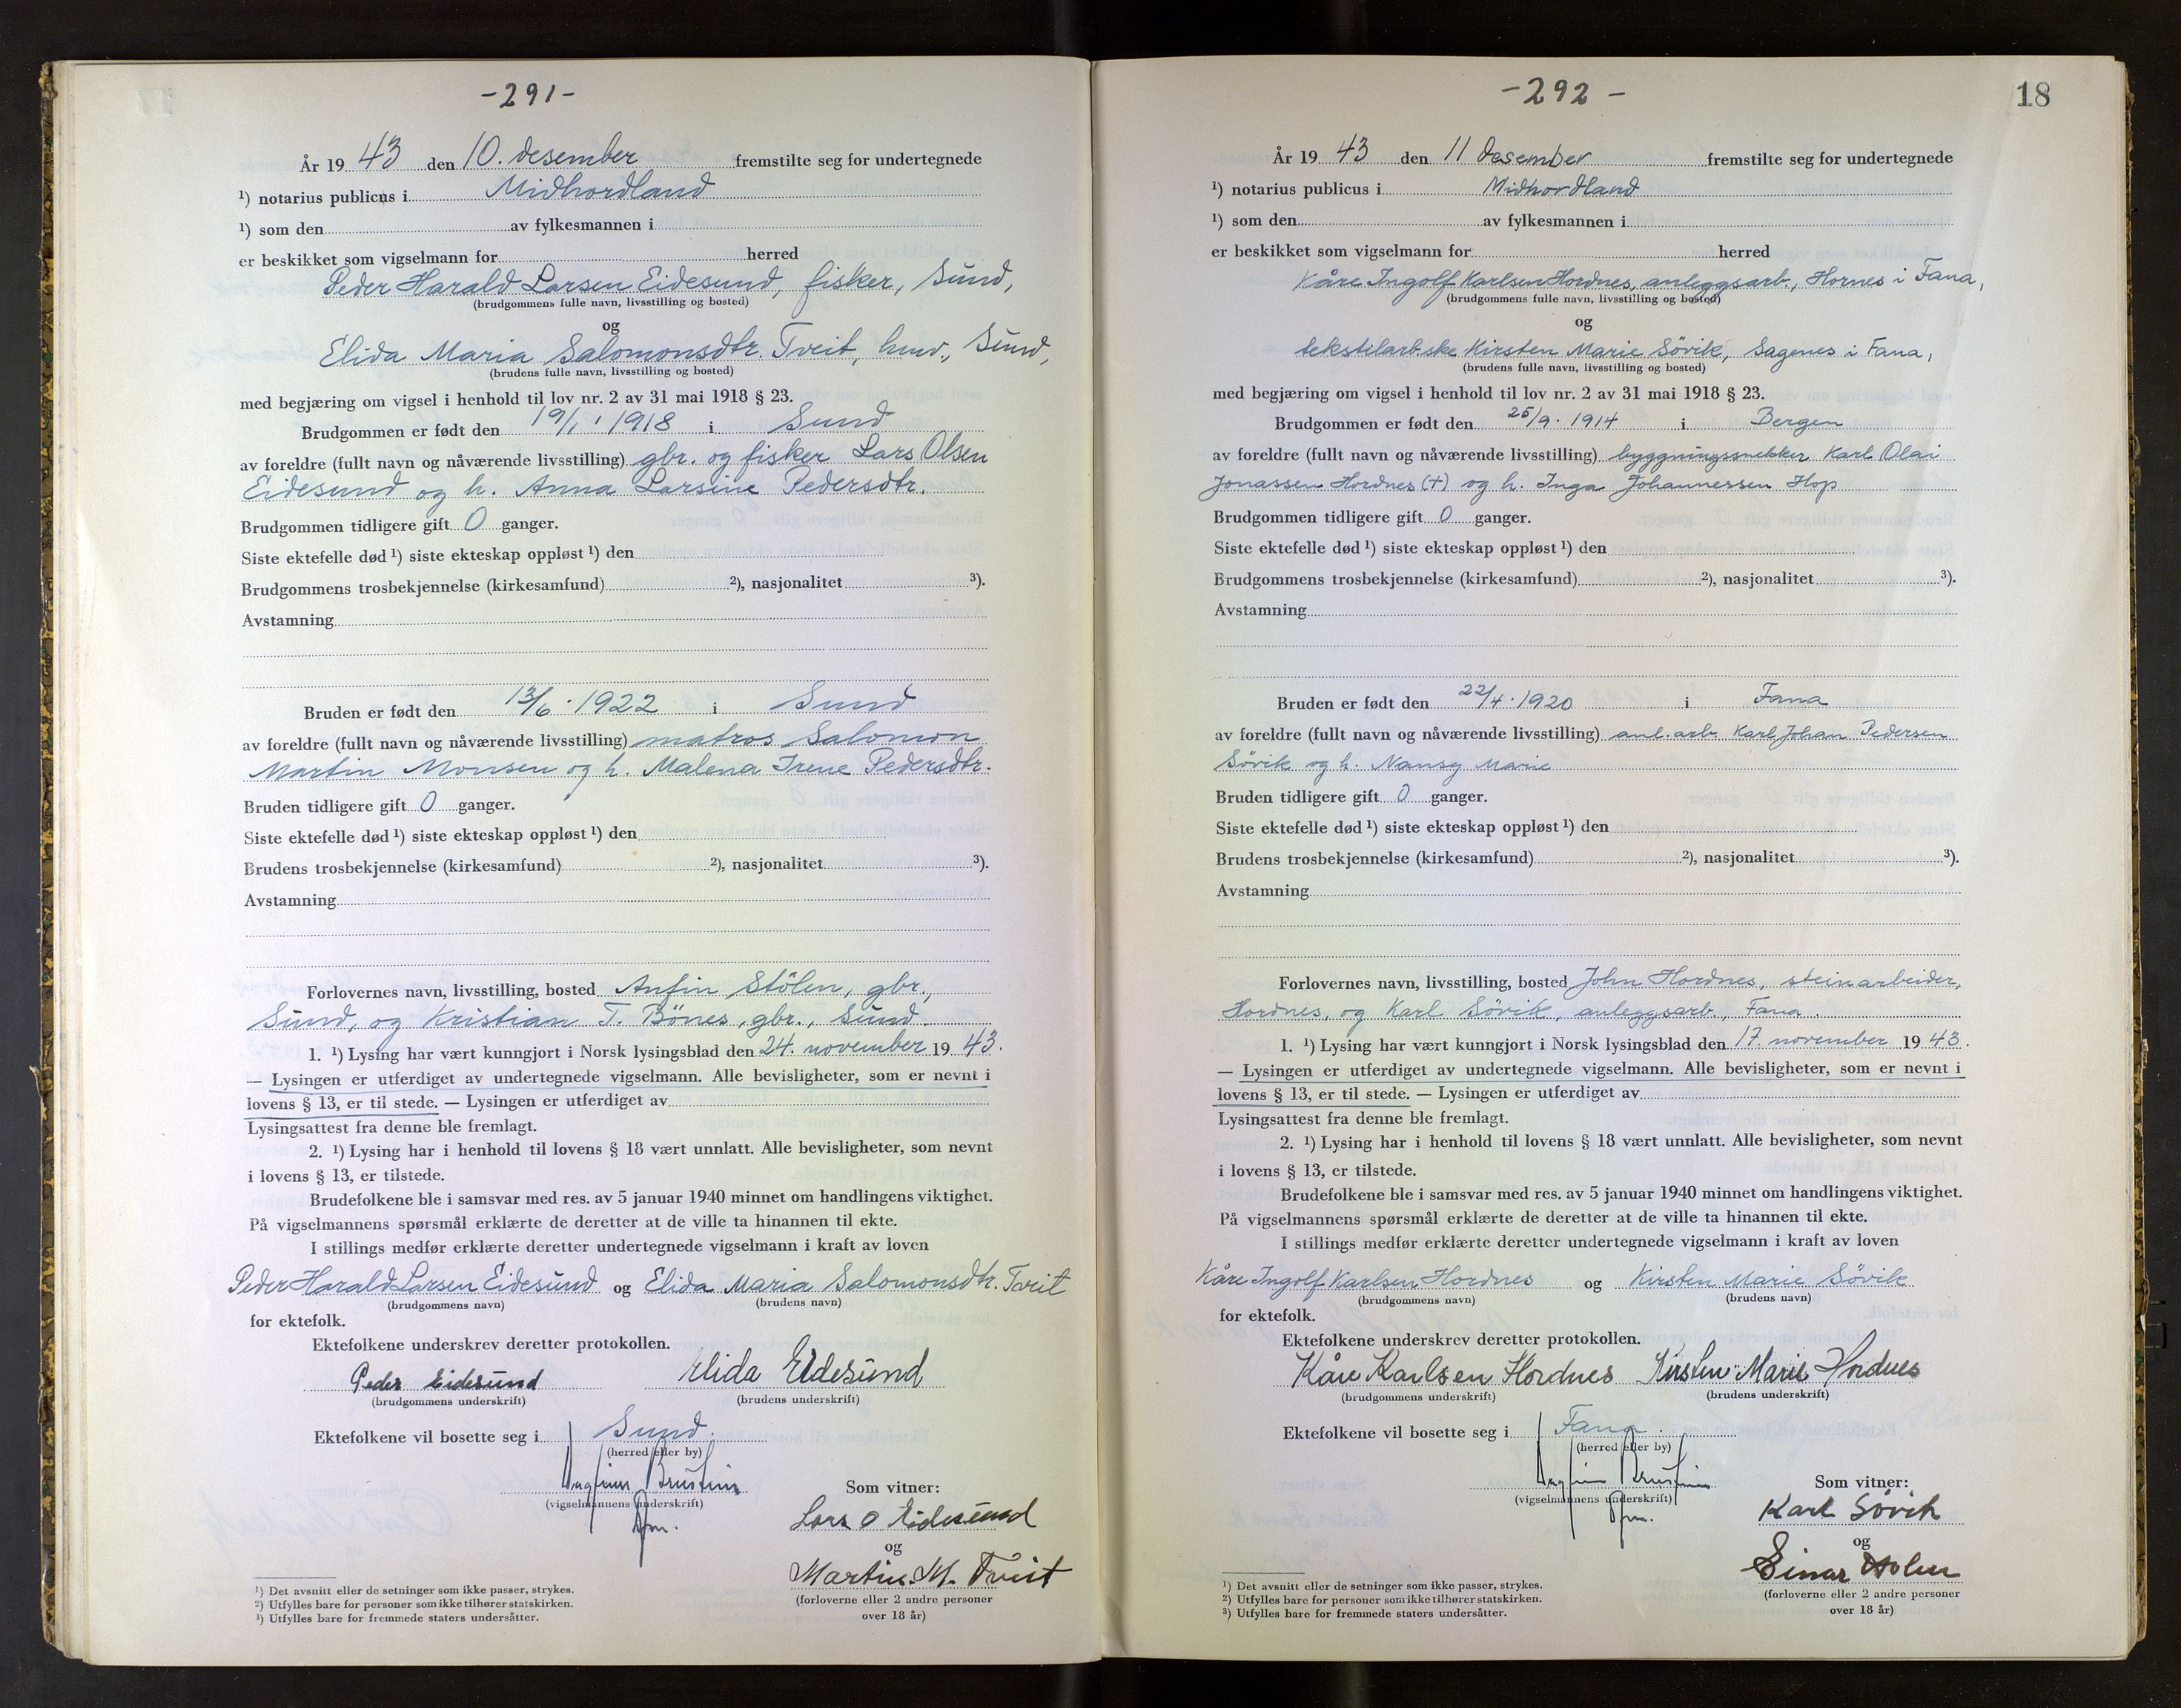 -291-
År 19 43 den 10. desember fremstilte seg for undertegnede
¹) notarius publicus i Midhordland
¹) som den av fylkesmannen i
er beskikket som vigselmann for herred
Peder Harald Larsen Eidesund, fisker, Sund,
(brudgommens fulle navn, livsstilling og bosted)
og
Elida Maria Salomonsdtr. Tveit, husv., Sund,
(brudens fulle navn, livsstilling og bosted)
med begjæring om vigsel i henhold til lov nr. 2 av 31 mai 1918 § 23.
Brudgommen er født den 19/1 1918 i Sund
av foreldre (fullt navn og nåværende livsstilling) gbr. og fisker Lars Olsen
Eidesund og h. Anna Larsine Pedersdtr.
Brudgommen tidligere gift 0 ganger.
Siste ektefelle død ¹) siste ekteskap oppløst ¹) den
Brudgommens trosbekjennelse (kirkesamfund) ²), nasjonalitet ³).
Avstamning
Bruden er født den 13/6. 1922 i Sund
av foreldre (fullt navn og nåværende livsstilling) matros Salomon
Martin Monsen og h. Malena Irene Pedersdtr.
Bruden tidligere gift 0 ganger.
Siste ektefelle død ¹) siste ekteskap oppløst ¹) den
Brudens trosbekjennelse (kirkesamfund) ²), nasjonalitet ³).
Avstamning
Forlovernes navn, livsstilling, bosted Anfin Stölen, gbr.,
Sund, og Kristian T. Bönes, gbr., Sund.
1. ¹) Lysing har vært kunngjort i Norsk lysingsblad den 24. november 19 43.
— Lysingen er utferdiget av undertegnede vigselmann. Alle bevisligheter, som er nevnt i
lovens § 13, er til stede. — Lysingen er utferdiget av
Lysingsattest fra denne ble fremlagt.
2. ¹) Lysing har i henhold til lovens § 18 vært unnlatt. Alle bevisligheter, som nevnt
i lovens § 13, er tilstede.
Brudefolkene ble i samsvar med res. av 5 januar 1940 minnet om handlingens viktighet.
På vigselmannens spørsmål erklærte de deretter at de ville ta hinannen til ekte.
I stillings medfør erklærte deretter undertegnede vigselmann i kraft av loven
Peder Harald Larsen Eidesund og Elida Maria Salomonsdtr. Tveit
(brudgommens navn) (brudens navn)
for ektefolk.
Ektefolkene underskrev deretter protokollen.
Peder Eidesund Elida Eidesund
(brudgommens underskrift) (brudens underskrift)
Ektefolkene vil bosette seg i Sund.
(herred eller by)
(vigselmannens underskrift)
Som vitner:
Lars O Eidesund
og
Martin. M. Tveit
(forloverne eller 2 andre personer
over 18 år)
¹) Det avsnitt eller de setninger som ikke passer, strykes.
²) Utfylles bare for personer som ikke tilhører statskirken.
³) Utfylles bare for fremmede staters undersåtter.
-292- 18
År 19 43 den 11 desember fremstilte seg for undertegnede
¹) notarius publicus i Midhordland
¹) som den av fylkesmannen i
er beskikket som vigselmann for herred
Kåre Ingolf Karlsen Hordnes, anleggsarb., Hornes i Fana,
(brudgommens fulle navn, livsstilling og bosted)
og
tekstilarb.ske Kirsten Marie Sövik, Sagenes i Fana,
(brudens fulle navn, livsstilling og bosted)
med begjæring om vigsel i henhold til lov nr. 2 av 31 mai 1918 § 23.
Brudgommen er født den 25/9. 1914 i Bergen
av foreldre (fullt navn og nåværende livsstilling) byggningssnekker Karl Olai
Jonassen Hordnes (+) og h. Inga Johannessen Hop
Brudgommen tidligere gift 0 ganger.
Siste ektefelle død ¹) siste ekteskap oppløst ¹) den
Brudgommens trosbekjennelse (kirkesamfund) ²), nasjonalitet ³).
Avstamning
Bruden er født den 22/4. 1920 i Fana
av foreldre (fullt navn og nåværende livsstilling) anl. arb. Karl Johan Pedersen
Sövik og h. Nansy Marie
Bruden tidligere gift 0 ganger.
Siste ektefelle død ¹) siste ekteskap oppløst ¹) den
Brudens trosbekjennelse (kirkesamfund) ²), nasjonalitet ³).
Avstamning
Forlovernes navn, livsstilling, bosted John Hordnes, steinarbeider,
Hordnes, og Karl Sövik, anleggsarb., Fana.
1. ¹) Lysing har vært kunngjort i Norsk lysingsblad den 17. november 19 43.
— Lysingen er utferdiget av undertegnede vigselmann. Alle bevisligheter, som er nevnt i
lovens § 13, er til stede. — Lysingen er utferdiget av
Lysingsattest fra denne ble fremlagt.
2. ¹) Lysing har i henhold til lovens § 18 vært unnlatt. Alle bevisligheter, som nevnt
i lovens § 13, er tilstede.
Brudefolkene ble i samsvar med res. av 5 januar 1940 minnet om handlingens viktighet.
På vigselmannens spørsmål erklærte de deretter at de ville ta hinannen til ekte.
I stillings medfør erklærte deretter undertegnede vigselmann i kraft av loven
Kåre Ingolf Karlsen Hordnes og Kirsten Marie Sövik
(brudgommens navn) (brudens navn)
for ektefolk.
Ektefolkene underskrev deretter protokollen.
Kåre Karlsen Hordnes Kirsten Marie Hordnes
(brudgommens underskrift) (brudens underskrift)
Ektefolkene vil bosette seg i Fana.
(herred eller by)
(vigselmannens underskrift)
Som vitner:
Karl Sövik
og
Einar Holm
(forloverne eller 2 andre personer
over 18 år)
¹) Det avsnitt eller de setninger som ikke passer, strykes.
²) Utfylles bare for personer som ikke tilhører statskirken.
³) Utfylles bare for fremmede staters undersåtter.